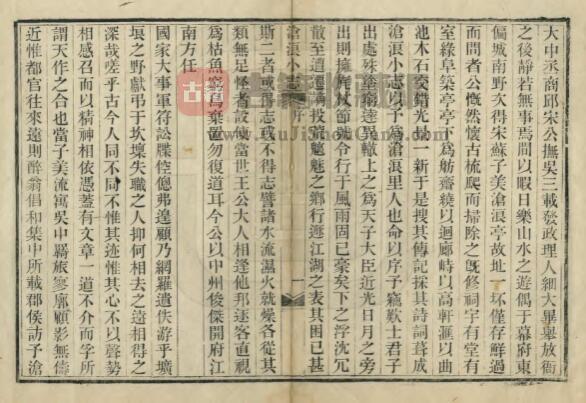 大中丞商邱宋公撫吳三載發政理人細大畢舉放衙
之後靜若無事焉間以暇日樂山水之遊偶于幕府東
偏城南野次得宋蘇子美滄浪亭故址一抔僅存鮮過
而問者公慨然懷古梳爬而掃除之旣修祠宇有堂有
室緣阜築亭亭下為舫齋繞以迴廊峙以高軒滙以曲
池木石交錯光景一新于是搜其傳記採其詩詞葺成
滄浪小志以予為滄浪里人也命以序予竊歎士君子
出處殊塗窮達異轍上之為天子大臣近光日月之旁
出則擁旄仗節號令行于風雨固已豪矣下之浮沈冗
散至遭遷謫投荒魑魅之鄉行遯江湖之表其困已甚
滄浪小志 序 一
斯二者或得志或不得志譬諸水流濕火就燥各從其
類無足怪者設使當世王公大人相逢他邦逐客直視
為枯魚窮鳥棄置勿復道耳今公以中州俊傑開府江
南方任
國家大事軍符訟牒倥傯弗遑顧乃網羅遺佚游乎壙
埌之野獻弔于坎壈失職之人抑何相去之遠相得之
深哉嗟乎古今人同不同不惟其迹惟其心不以聲勢
相感召而以精神相依憑蓋有文章一道不介而孚所
謂天作之合也當子美流寓吳中羈旅寥廓顧影無儔
近惟都官往來遠則醉翁倡和集中所載郡侯訪予滄